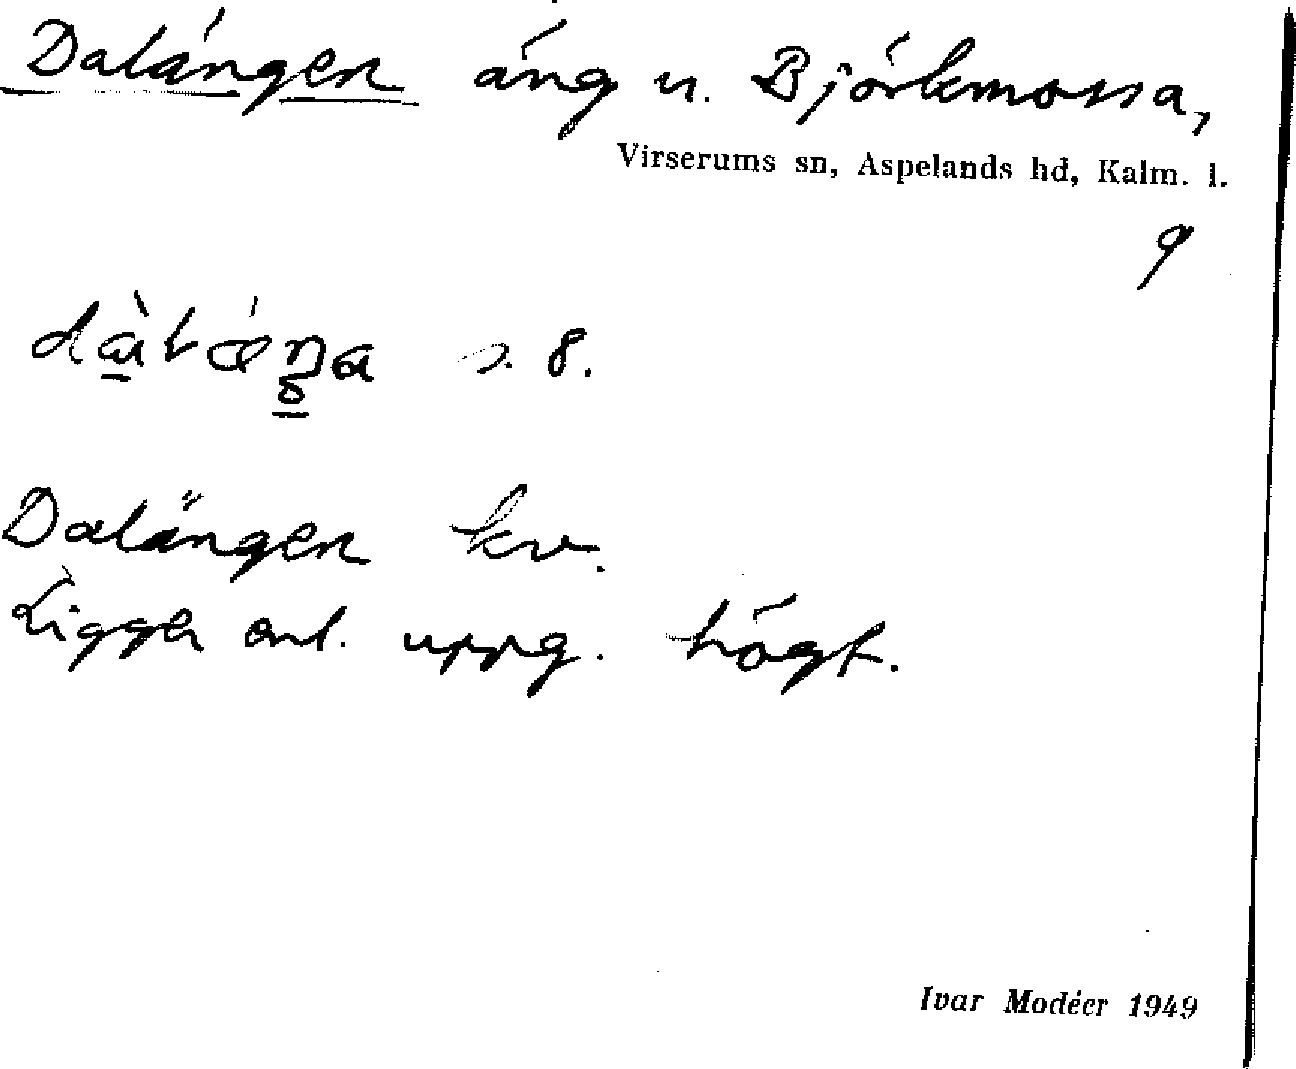 Dalängen äng u. Björkmossa,
Virserums sn, Aspelands hd, Kalm. l.
9
s. 8.
Dalängen kv.
Ligger enl. uppg. högt.
Ivar Modéer 1949